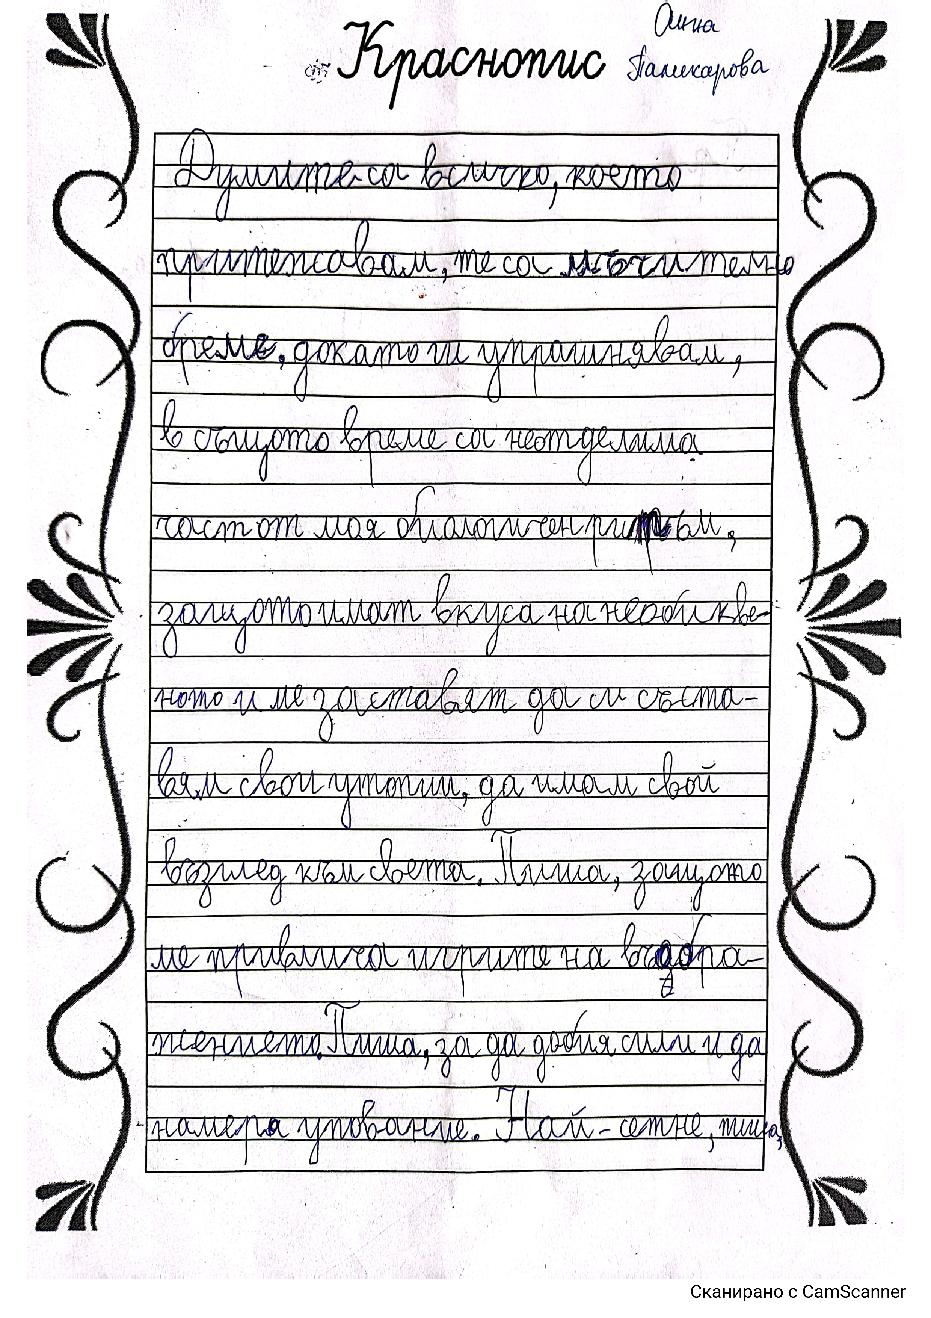 от Краснопис Анна
Паликарова
Думите са всичко, което
притежавам, те са мъчително
бреме, докато ги упражнявам,
в същото време са неотделима
част от моя биологичен ритъм,
защото имат вкуса на необикве-
ното и ме заставят да си съста-
вям свои утопии, да имам свой
възглед към света. Пиша, защото
ме привлича игрите на въобра-
жението. Пиша, за да добия сили и да
намеря упование. Най-сетне, пиша,
Сканирано с CamScanner